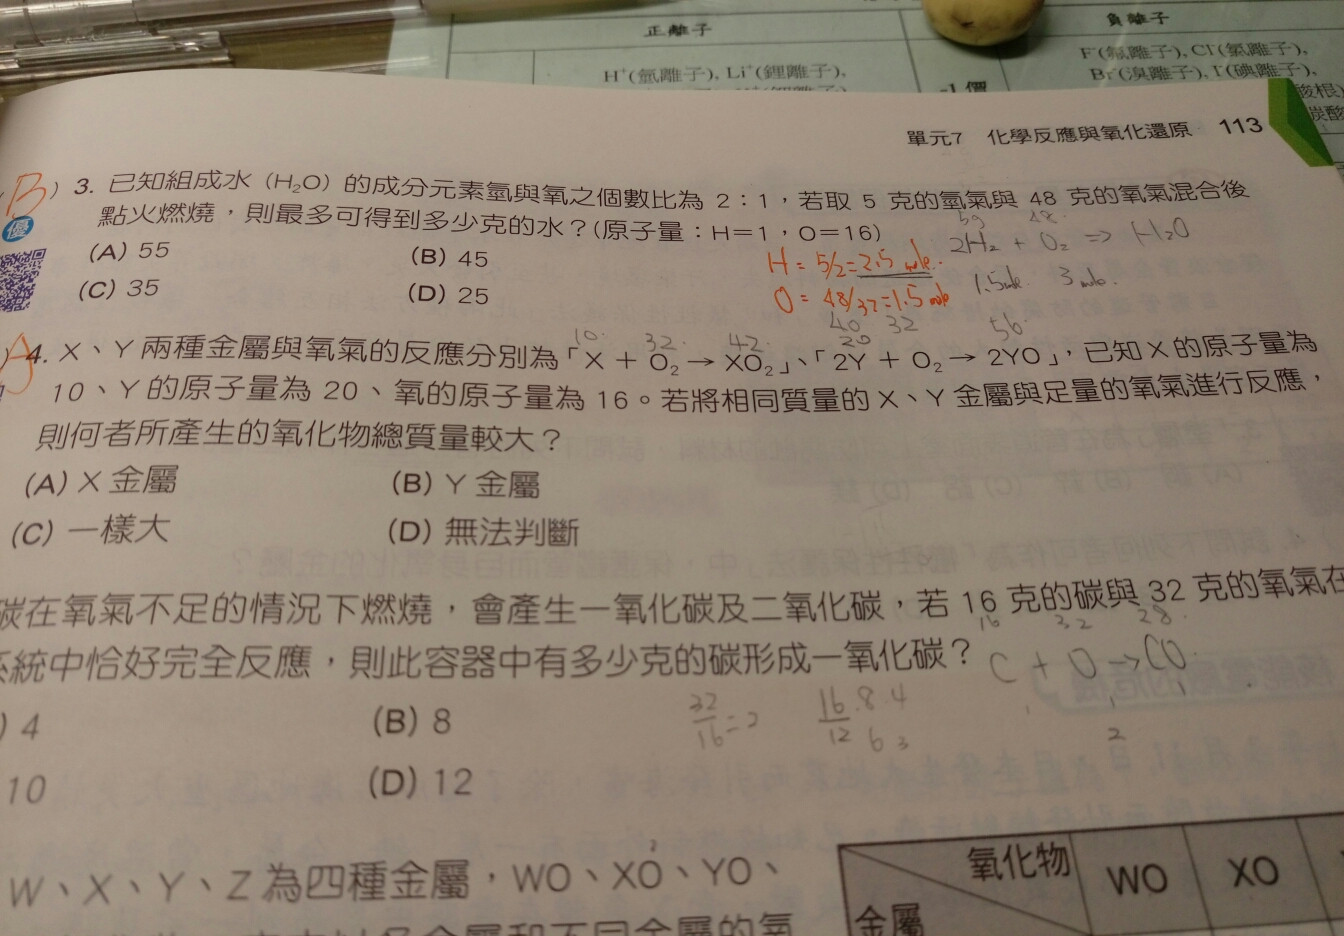 正離子
負離子
H⁺(氫離子), Li⁺(鋰離子),
-1 價
F⁻(氟離子), Cl⁻(氯離子),
Br⁻(溴離子), I⁻(碘離子),
單元7 化學反應與氧化還原 113
B ) 3. 已知組成水 (H₂O) 的成分元素氫與氧之個數比為 2:1,若取 5 克的氫氣與 48 克的氧氣混合後
優 點火燃燒,則最多可得到多少克的水?(原子量:H=1,O=16)
(A) 55 (B) 45
(C) 35 (D) 25
5g 48
2H₂ + O₂ => H₂O
1.5mole 3 mole.
H = 5/2 = 2.5 mole.
O = 48/32 = 1.5 mole
10 32 42 40 20 32 56
A ) 4. X、Y 兩種金屬與氧氣的反應分別為「X + O₂ → XO₂」、「2Y + O₂ → 2YO」,已知 X 的原子量為
10、Y 的原子量為 20、氧的原子量為 16。若將相同質量的 X、Y 金屬與足量的氧氣進行反應,
則何者所產生的氧化物總質量較大?
(A) X 金屬 (B) Y 金屬
(C) 一樣大 (D) 無法判斷
碳在氧氣不足的情況下燃燒,會產生一氧化碳及二氧化碳,若 16 克的碳與 32 克的氧氣在
系統中恰好完全反應,則此容器中有多少克的碳形成一氧化碳?
16 32 28
C + O => CO
1 1 1
2
32/16 = 2 16/12 8/6 4/3
) 4 (B) 8
10 (D) 12
W、X、Y、Z 為四種金屬,WO、XO、YO、
氧化物 WO XO
金屬